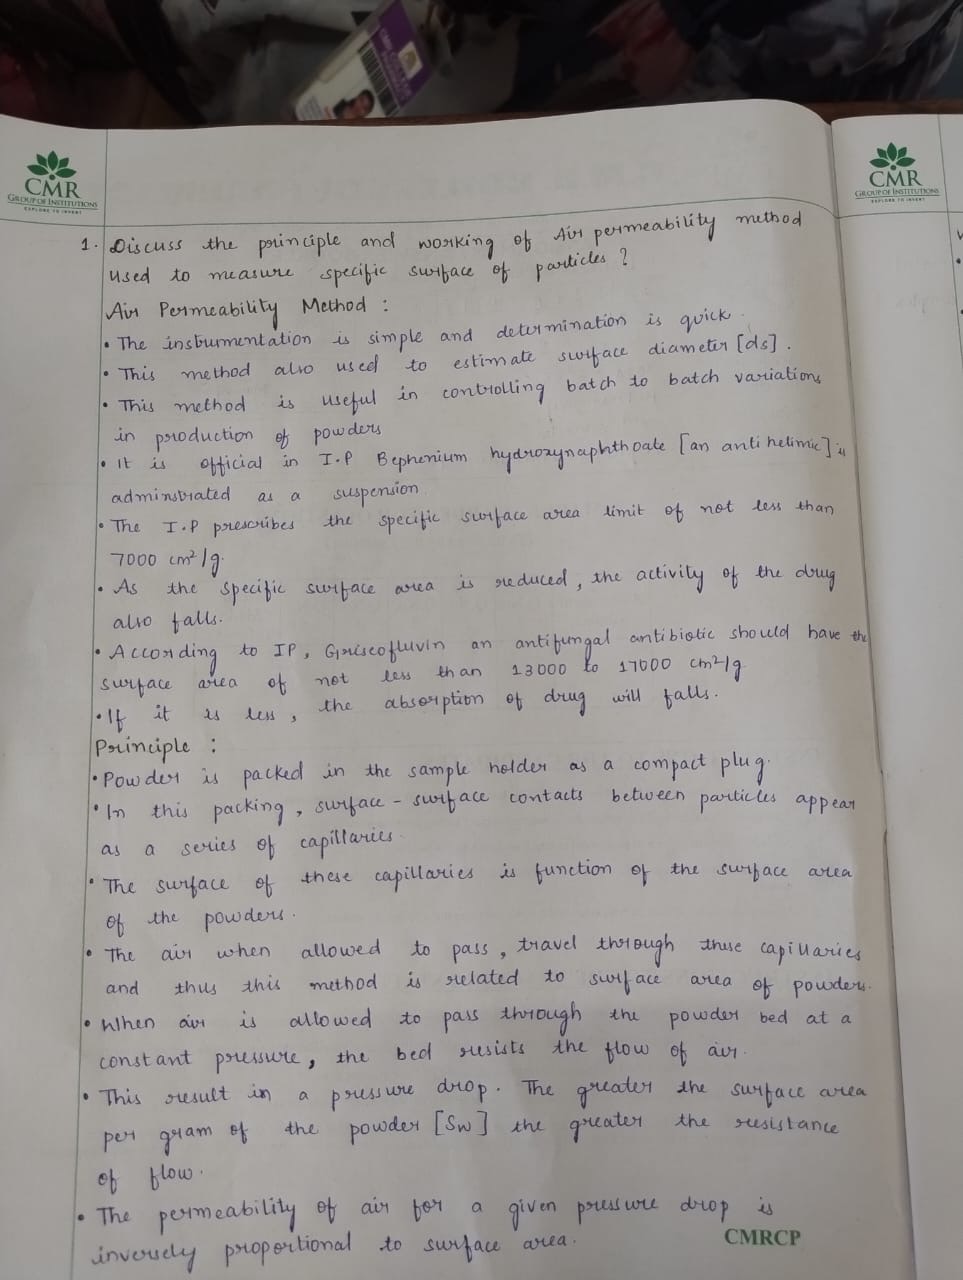 CMR
GROUP OF INSTITUTIONS
EXPLORE TO INVENT
CMR
GROUP OF INSTITUTIONS
EXPLORE TO INVENT
1. Discuss the principle and working of Air permeability method
used to measure specific surface of particles ?
Air Permeability Method :
• The instrumentation is simple and determination is quick.
• This method also used to estimate surface diameter [ds].
• This method is useful in controlling batch to batch variations
in production of powders
• It is official in I.P Bephenium hydroxynaphthoate [an anti helimic] is
adminstrated as a suspension.
• The I.P prescribes the specific surface area limit of not less than
7000 cm²/g.
• As the specific surface area is reduced, the activity of the drug
also falls.
• According to IP, Griscofluvin an antifungal antibiotic should have the
surface area of not less than 13000 to 17000 cm²/g
• If it is less, the absorption of drug will falls.
Principle :
• Powder is packed in the sample holder as a compact plug.
• In this packing, surface - surface contacts between particles appear
as a series of capillaries.
• The surface of these capillaries is function of the surface area
of the powders.
• The air when allowed to pass, travel through these capillaries
and thus this method is related to surface area of powders.
• When air is allowed to pass through the powder bed at a
constant pressure, the bed resists the flow of air.
• This result in a pressure drop. The greater the surface area
per gram of the powder [Sw] the greater the resistance
of flow.
• The permeability of air for a given pressure drop is
inversely proportional to surface area.
CMRCP